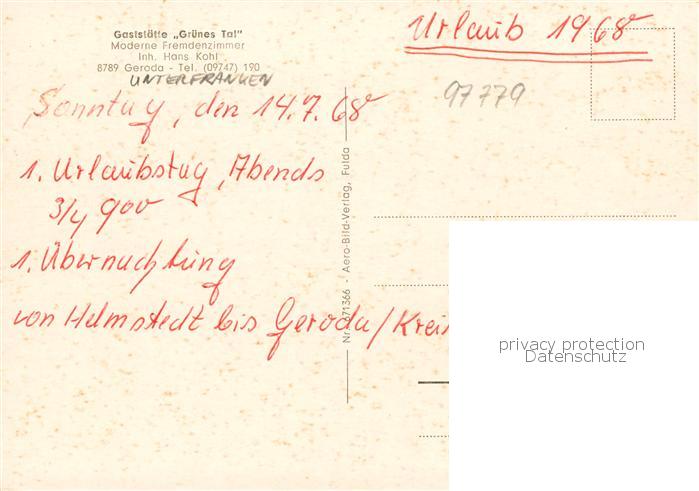 Gaststätte „Grünes Tal"
Moderne Fremdenzimmer
Inh. Hans Kohl
8789 Geroda - Tel. (09747) 190
UNTERFRANKEN
Urlaub 1968
97779
Sonntag, den 14.7.68
1. Urlaubstag, Abends
3/4 900
1. Übernachtung
von Helmstedt bis Geroda/Kreis
Nr. 671366 - Aero-Bild-Verlag, Fulda
privacy protection
Datenschutz